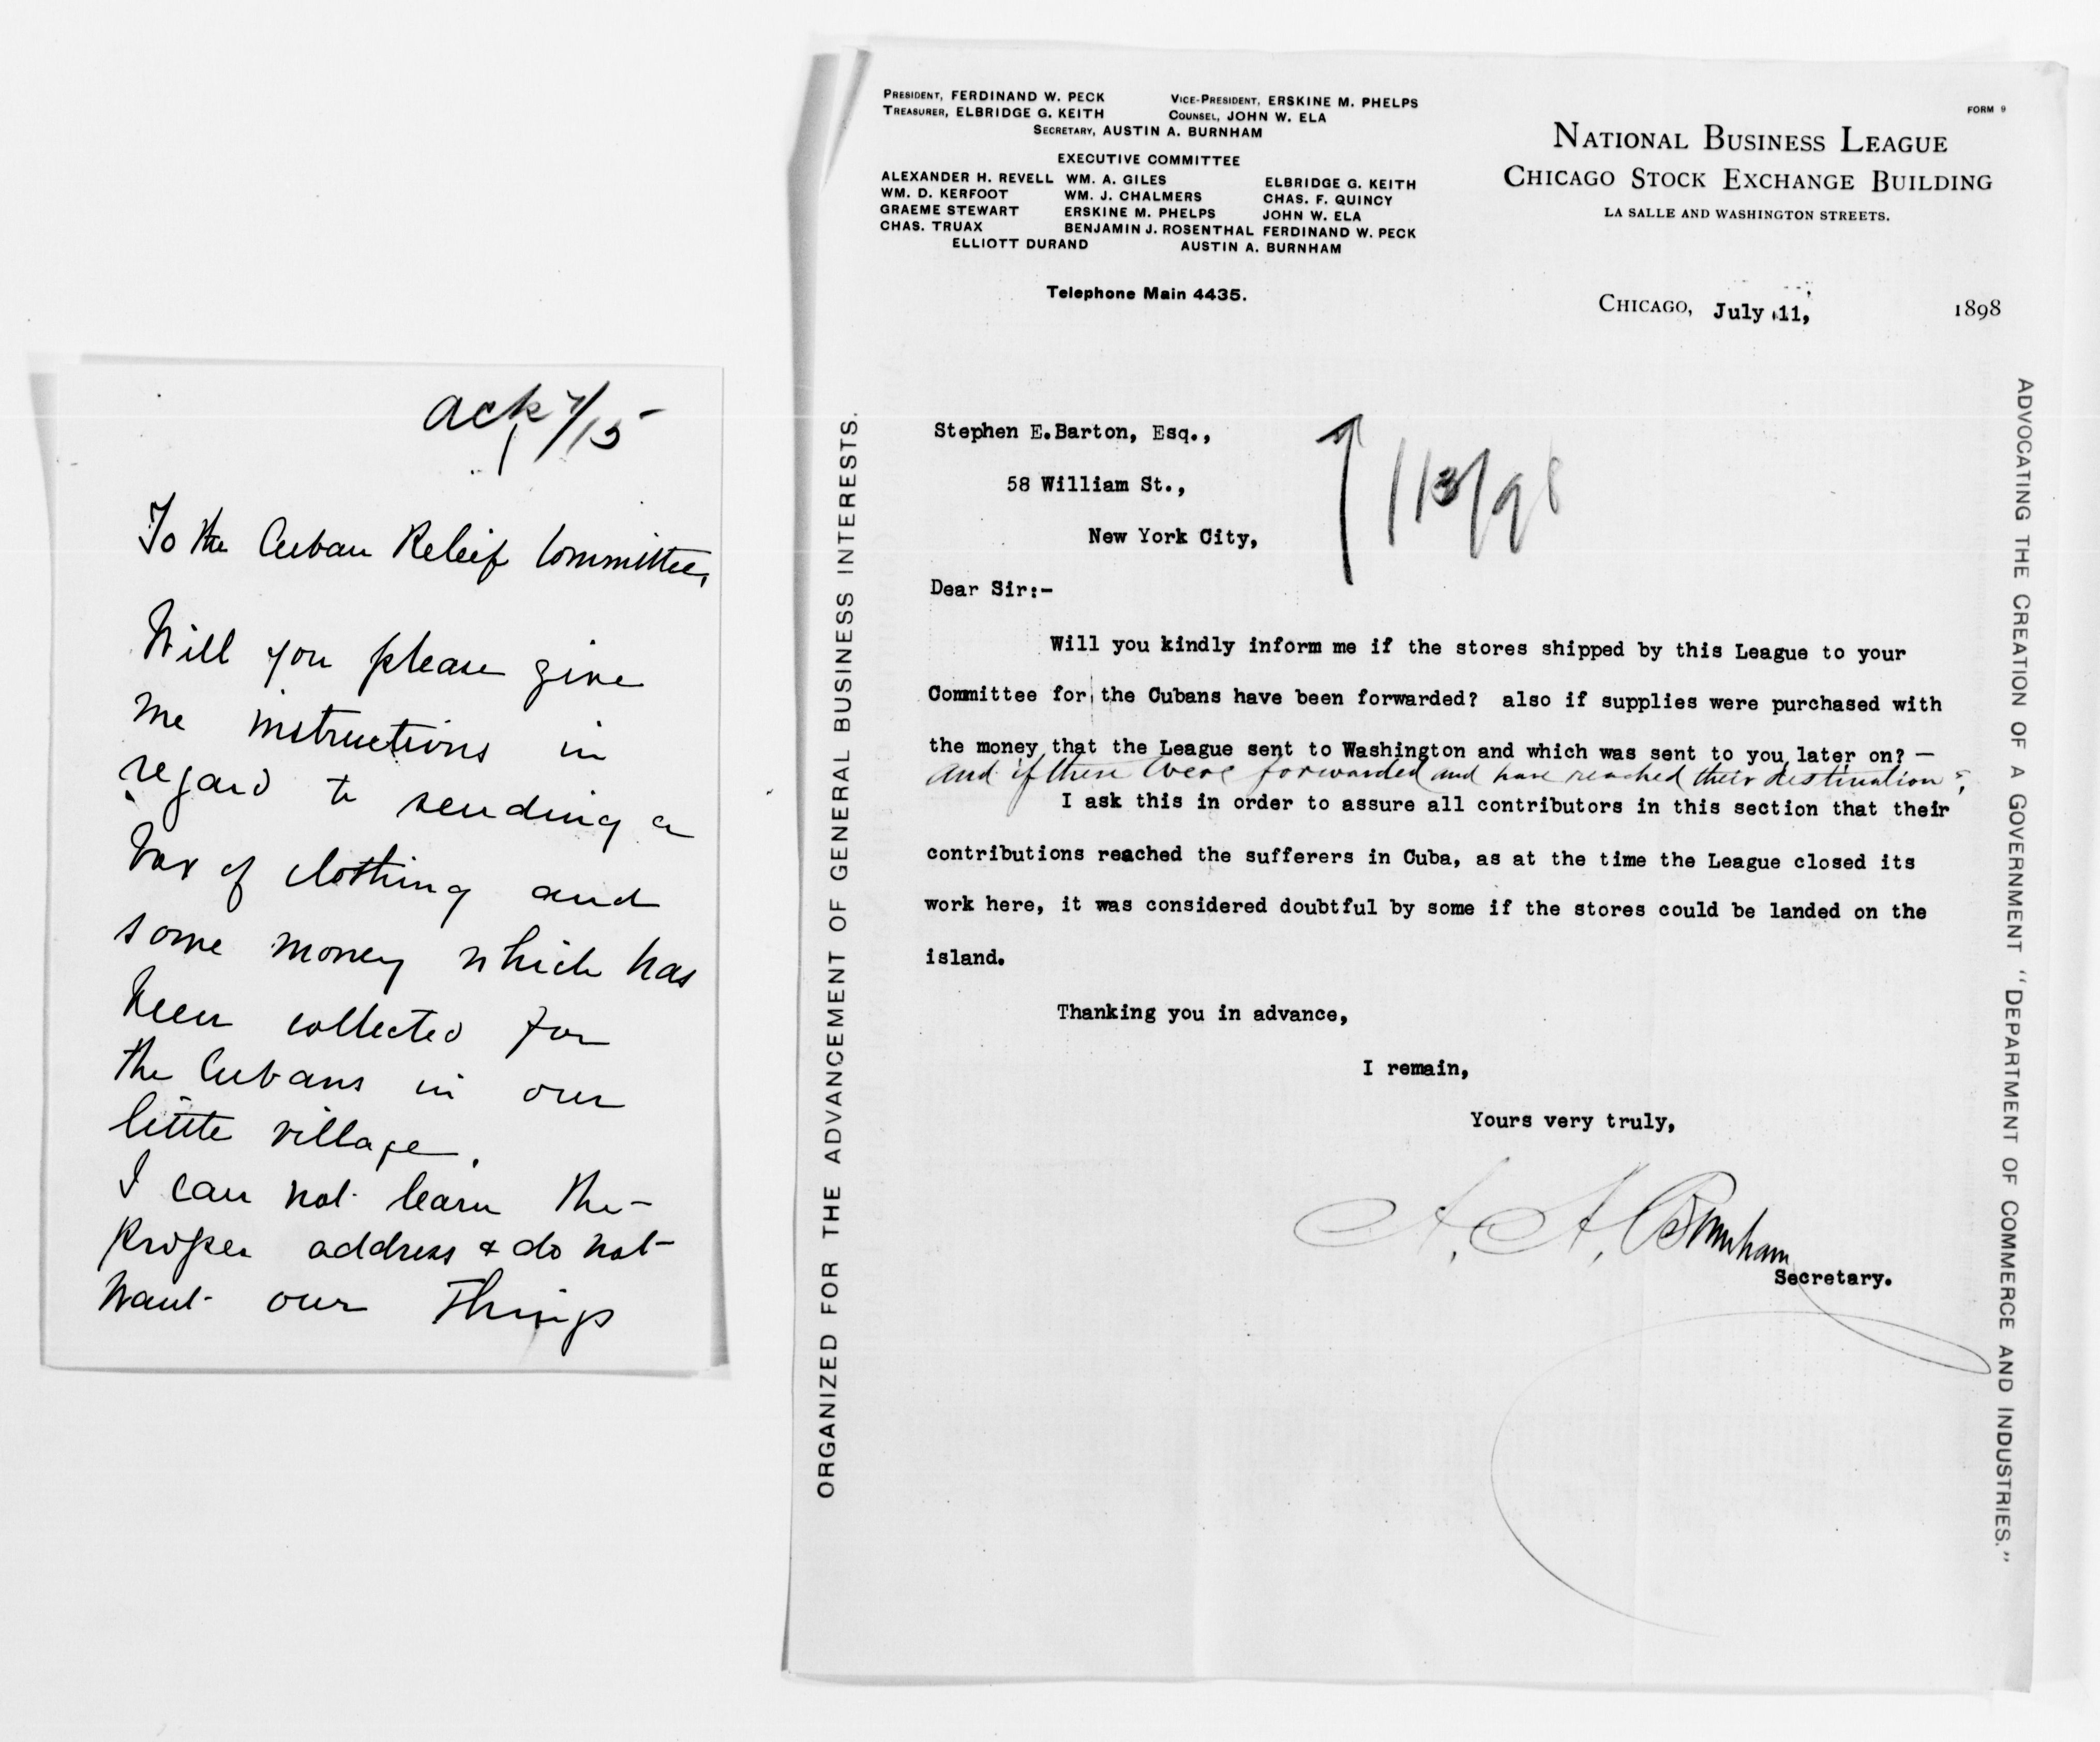 ack 7/15
To the Cuban Releif Committee,
Will you please give
me instructions in
regard to sending a
box of clothing and
some money which has
been collected for
the Cubans in our
little village.
I can not learn the
proper address & do not
want our things
PRESIDENT, FERDINAND W. PECK VICE-PRESIDENT, ERSKINE M. PHELPS
TREASURER, ELBRIDGE G. KEITH COUNSEL, JOHN W. ELA
SECRETARY, AUSTIN A. BURNHAM
EXECUTIVE COMMITTEE
ALEXANDER H. REVELL WM. A. GILES ELBRIDGE G. KEITH
WM. D. KERFOOT WM. J. CHALMERS CHAS. F. QUINCY
GRAEME STEWART ERSKINE M. PHELPS JOHN W. ELA
CHAS. TRUAX BENJAMIN J. ROSENTHAL FERDINAND W. PECK
ELLIOTT DURAND AUSTIN A. BURNHAM
Telephone Main 4435.
FORM 9
NATIONAL BUSINESS LEAGUE
CHICAGO STOCK EXCHANGE BUILDING
LA SALLE AND WASHINGTON STREETS.
CHICAGO, July 11, 1898
Stephen E.Barton, Esq.,
58 William St.,
New York City,
7/13/98
Dear Sir:-
Will you kindly inform me if the stores shipped by this League to your
Committee for the Cubans have been forwarded? also if supplies were purchased with
the money that the League sent to Washington and which was sent to you later on? —
and if these were forwarded and have reached their destination?
I ask this in order to assure all contributors in this section that their
contributions reached the sufferers in Cuba, as at the time the League closed its
work here, it was considered doubtful by some if the stores could be landed on the
island.
Thanking you in advance,
I remain,
Yours very truly,
A. A. Burnham
Secretary.
ORGANIZED FOR THE ADVANCEMENT OF GENERAL BUSINESS INTERESTS.
ADVOCATING THE CREATION OF A GOVERNMENT "DEPARTMENT OF COMMERCE AND INDUSTRIES."